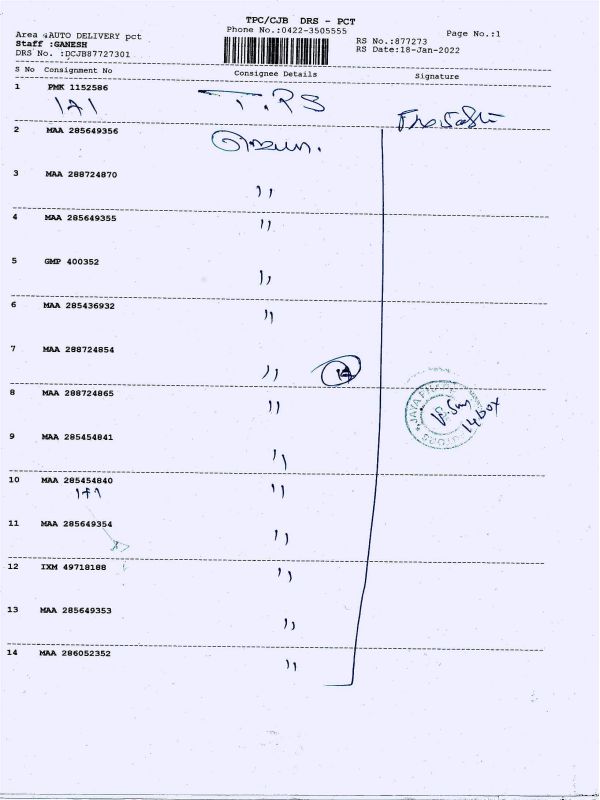 TPC/CJB DRS - PCT
Phone No.:0422-3505555
Page No.:1
Area :AUTO DELIVERY pct
Staff :GANESH
DRS No. :DCJB87727301
RS No.:877273
RS Date:18-Jan-2022
S No Consignment No Consignee Details Signature
1 PMK 1152586 T.RS
1+1
2 MAA 285649356
3 MAA 288724870 ,,
4 MAA 285649355 ,,
5 GMP 400352 ,,
6 MAA 285436932 ,,
7 MAA 288724854 ,, 14
8 MAA 288724865 ,,
JAYA 14 box
9 MAA 285454841 ,,
10 MAA 285454840 ,,
1+1
11 MAA 285649354 ,,
12 IXM 49718188 ,,
13 MAA 285649353 ,,
14 MAA 286052352 ,,